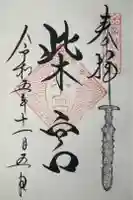 奉拝
柴宮
令和五年十一月五日